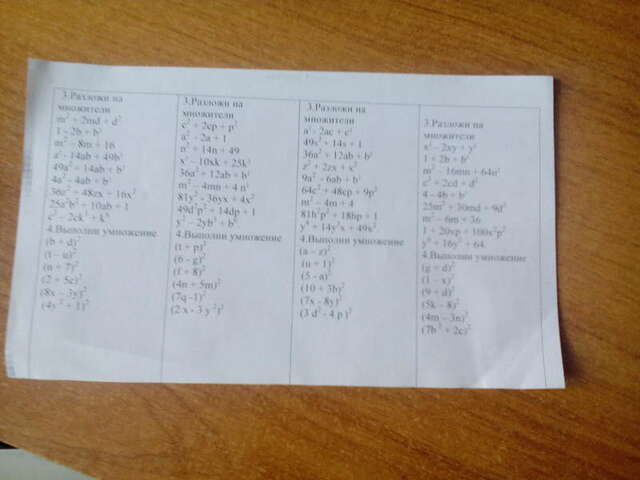 3.Разложи на
множители
m² + 2md + d²
1 - 2b + b²
m² – 8m + 16
a² - 14ab + 49b²
49a² + 14ab + b²
4a² - 4ab + b²
36a² – 48zx + 16x²
25a²b² + 10ab + 1
c² – 2ck³ + k⁶
4.Выполни умножение
(b + d)²
(t – u)²
(n + 7)²
(2 + 5c)²
(8x – 3y)²
(4y ² + 1)²
3.Разложи на
множители
c² + 2cp + p²
a² - 2a + 1
n² + 14n + 49
x² – 10xk + 25k²
36a² + 12ab + b²
m² – 4mn + 4 n²
81y² - 36yx + 4x²
49d²p² + 14dp + 1
y² – 2yb³ + b⁶
4.Выполни умножение
(t + p)²
(6 - g)²
(f + 8)²
(4n + 5m)²
(7q -1)²
(2 x - 3 y ²)²
3.Разложи на
множители
a² - 2ac + c²
49s² + 14s + 1
36a² + 12ab + b²
z² + 2zx + x²
9a² – 6ab + b²
64c² + 48cp + 9p²
m² – 4m + 4
81h²p² + 18hp + 1
y⁴ + 14y²x + 49x²
4.Выполни умножение
(a – z)²
(u + 1)²
(5 - a)²
(10 + 3b)²
(7x - 8y)²
(3 d² - 4 p )²
3.Разложи на
множители
x² – 2xy + y²
1 + 2b + b²
m² – 16mn + 64n²
c² + 2cd + d²
4 – 4b + b²
25m² + 30md + 9d²
m² – 6m + 36
1 + 20xp + 100x²p²
y⁶ + 16y³ + 64
4.Выполни умножение
(g + d)²
(1 – x)²
(9 + d)²
(5k – 8)²
(4m – 3n)²
(7b ³ + 2c)²